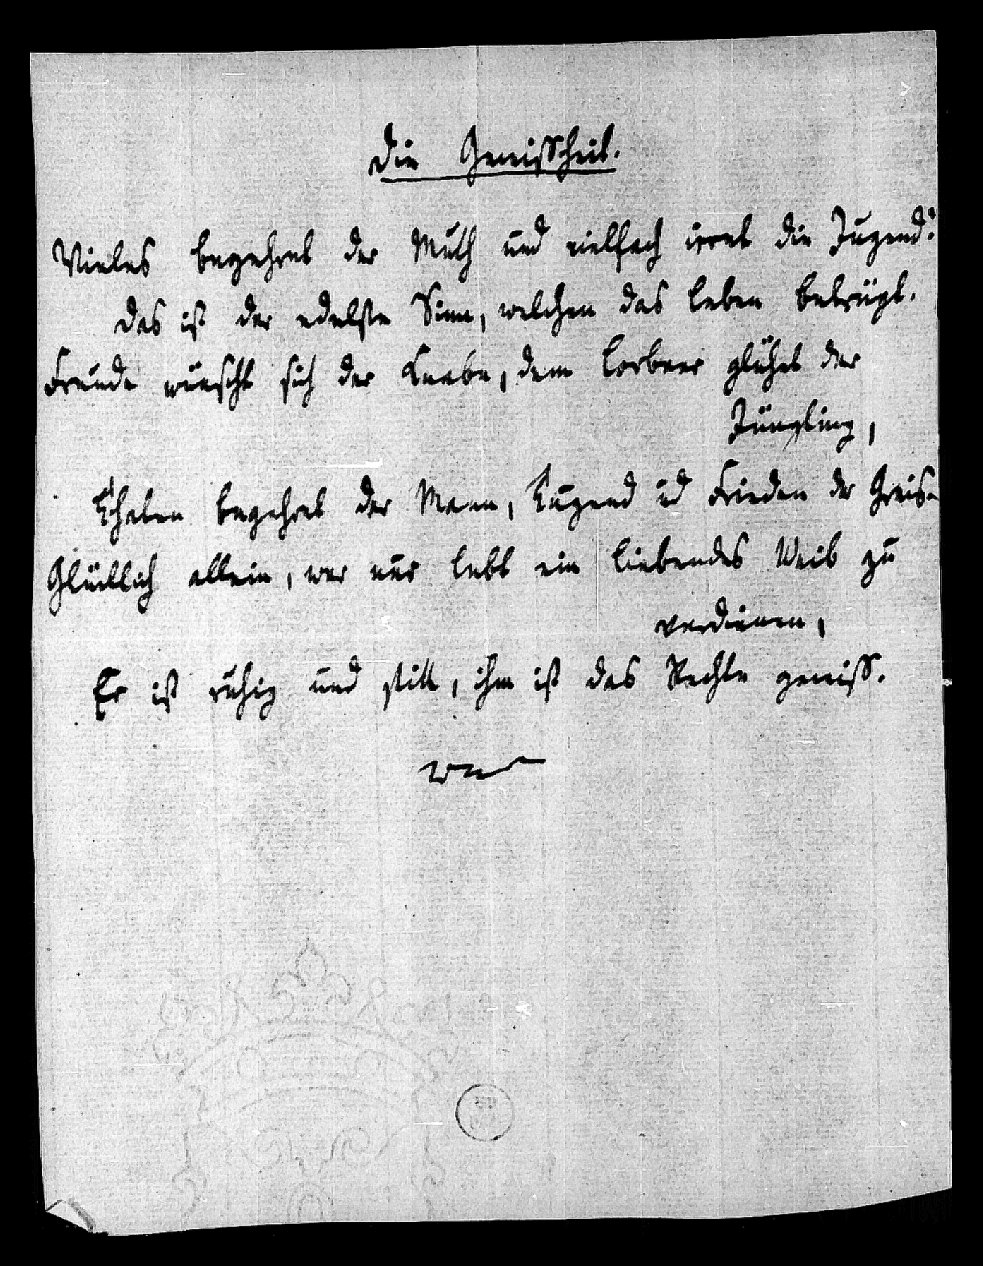 Die Gewissheit.
Vieles begehret der Muth und vielfach irret die Jugend:
Das ist der edelste Sinn, welchen das Leben betrügt.
Freude wünscht sich der Knabe, dem Lorbeer glühet der
Jüngling,
Thaten begehret der Mann, Tugend ud Frieden der Greis.
Glücklich allein, wer nur lebt ein liebendes Weib zu
verdienen,
Er ist ruhig und still, ihm ist das Rechte gewiss.